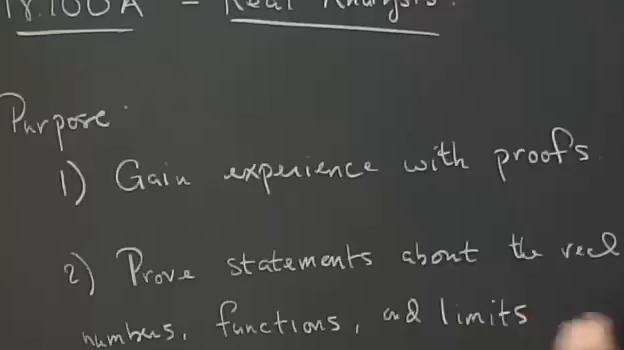 18.100A - Real Analysis.
Purpose:
1) Gain experience with proofs
2) Prove statements about the real
numbers, functions, and limits